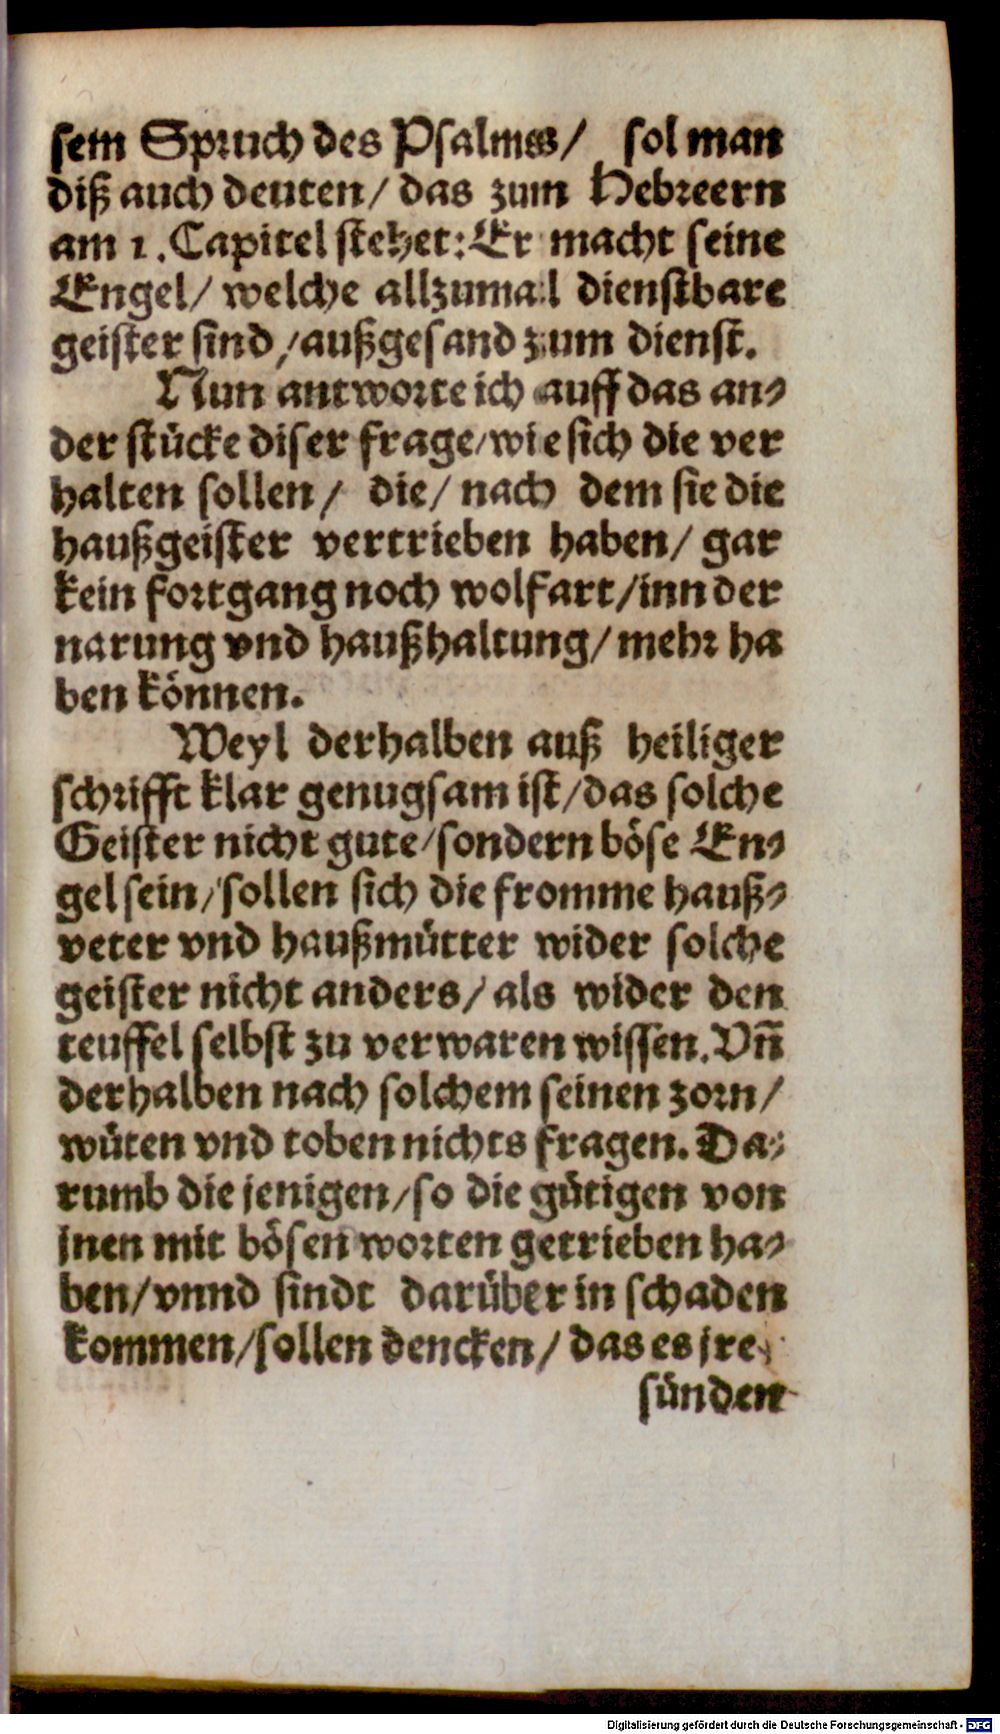 sem Spruch des Psalmes/ sol man
diß auch deuten/ das zum Hebreern
am 1. Capitel stehet: Er macht seine
Engel/ welche allzumal dienstbare
geister sind/ außgesand zum dienst.
Nun antworte ich auff das an⸗
der stücke diser frage/ wie sich die ver
halten sollen/ die/ nach dem sie die
haußgeister vertrieben haben/ gar
kein fortgang noch wolfart/ inn der
narung vnd haußhaltung/ mehr ha
ben können.
Weyl derhalben auß heiliger
schrifft klar genugsam ist/ das solche
Geister nicht gute/ sondern böse En⸗
gel sein/ sollen sich die fromme hauß⸗
veter vnd haußmütter wider solche
geister nicht anders/ als wider den
teuffel selbst zu verwaren wissen. Vñ
derhalben nach solchem seinen zorn/
wüten vnd toben nichts fragen. Da⸗
rumb die jenigen/ so die gütigen von
jnen mit bösen worten getrieben ha⸗
ben/ vnnd sindt darüber in schaden
kommen/ sollen dencken/ das es jre
sünden
Digitalisierung gefördert durch die Deutsche Forschungsgemeinschaft - DFG